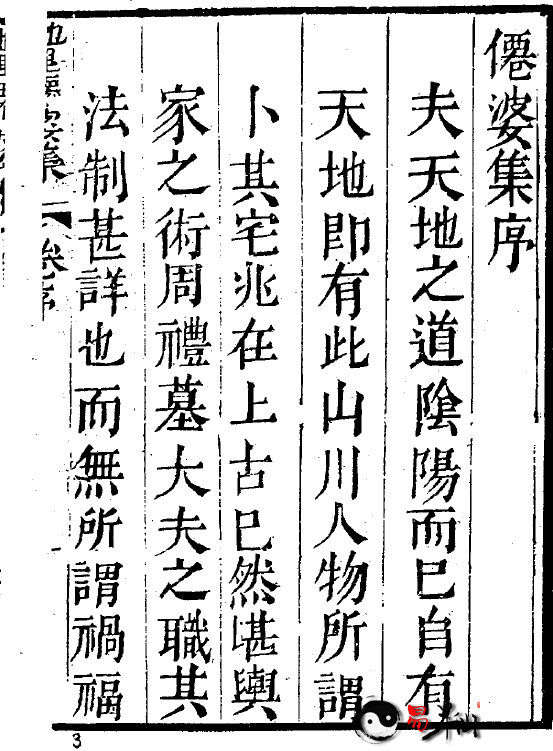 僊婆集序
夫天地之道陰陽而已自有
天地即有此山川人物所謂
卜其宅兆在上古已然堪輿
家之術周禮墓大夫之職其
法制甚詳也而無所謂禍福
集 卷序
3
易